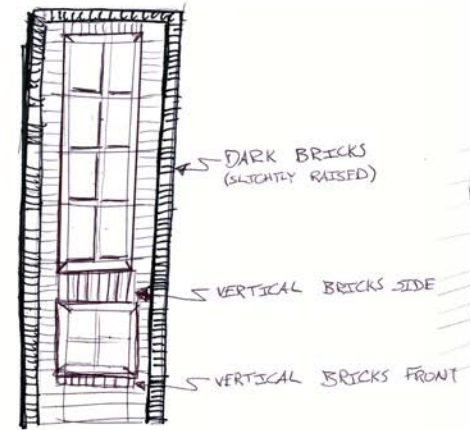 DARK BRICKS
(SLIGHTLY RAISED)
VERTICAL BRICKS SIDE
VERTICAL BRICKS FRONT